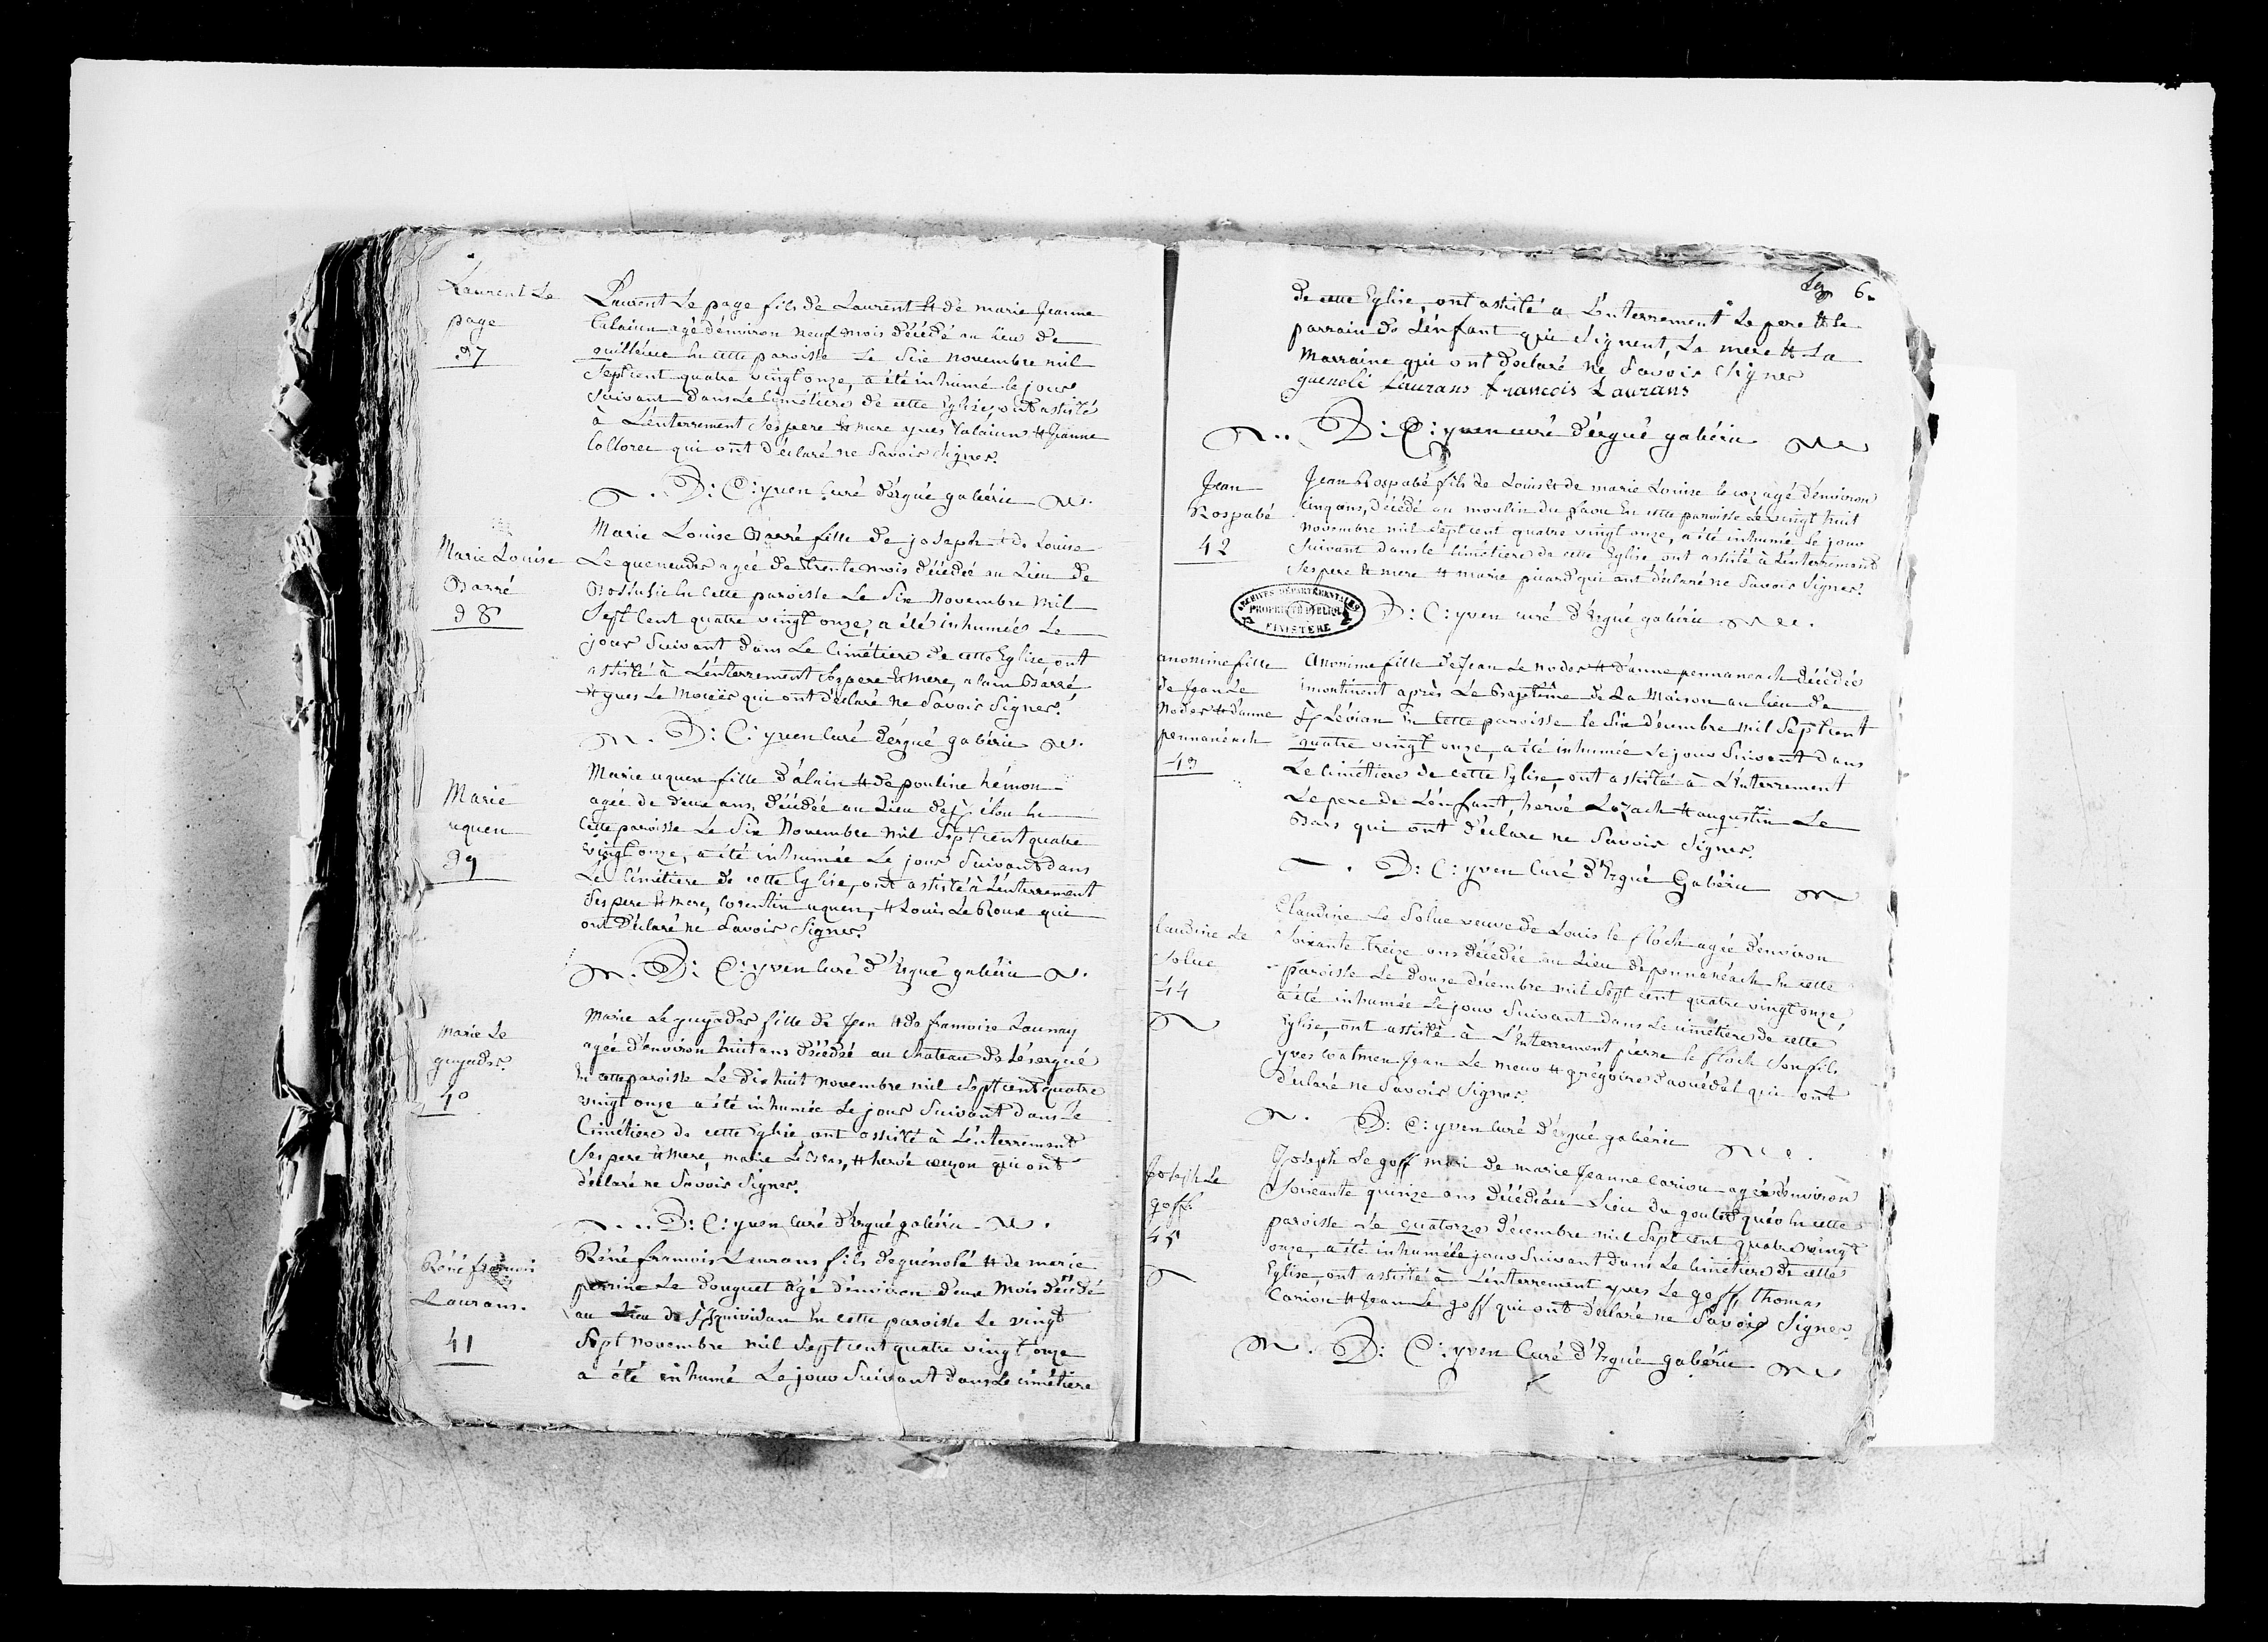 Laurent Le
page
37
Laurent Le page fils de Laurent et de marie Jeanne
Calaiun agé d'environ neuf mois décédé au lieu de
quilléuec en cette paroisse Le Six novembre mil
Sept cent quatre vingt onze, a été inhumé le jour
Suivant dans Le Cimétiere de cette Eglise, ont assisté
à L'enterrement Ses pere et mere yves Calaiun et Jeanne
Collorec qui ont déclaré ne Savoir Signer.
D: C: yven Curé d'ergué gabéric
Marie Louise
Barré
38
Marie Louise Barré fille de joseph et de Louise
Le queneudec agée de trente mois décédée au Lieu de
en Cette paroisse Le Six Novembre mil
Sept Cent quatre vingt onze, a été inhumée Le
jour Suivant dans Le Cimétiere de cette Eglise, ont
assisté à L'enterrement Ses pere et Mere, alain Barré
et yves Le qui ont déclaré ne Savoir Signer.
D: C: yven Curé d'ergué gabéric
Marie
uguen
39
Marie uguen fille d'alain et de pouline hémon
agée de deux ans, décédée au Lieu de en
Cette paroisse Le Six Novembre mil Sept Cent quatre
vingt onze, a été inhumée Le jour Suivant dans
Le Cimétiere de cette Eglise, ont assisté à L'enterrement
Ses pere et Mere, Corentin uguen, et Louis Le Roux qui
ont Déclaré ne Savoir Signer.
D: C: yven Curé d'Ergué gabéric
Marie Le
guyader
40
Marie Le guyader fille de Jean et de francoise Launay
agée d'environ huit ans décédée au Chateau de Lésergué
en cette paroisse Le dix huit novembre mil Sept cent quatre
vingt onze a été inhumée Le jour Suivant dans Le
Cimétiere de cette Eglise, ont assisté à L'enterrement
Ses pere et Mere, marie Le Bras, et hervé qui ont
déclaré ne Savoir Signer.
D: C: yven Curé d'Ergué gabéric
Réné francois
Laurans.
41
Réné francois Laurans fils de guénolé et de marie
perrine Le Douguet agé d'environ deux Mois décédé
au Lieu de Squividan En cette paroisse Le vingt
Sept novembre mil Sept cent quatre vingt onze
a été inhumé Le jour Suivant dans Le cimétiere
6
de cette Eglise, ont assisté a L'enterrement Le pere et le
parrain de L'enfant qui Signent, La mere et La
Marraine qui ont déclaré ne Savoir Signer
guenolé Laurans francois Laurans
D: C: yven curé d'ergué gabéric
Jean
Rospabé
42
Jean Rospabé fils de Louis et de marie Louise le coz agé d'environ
Cinq ans, décédé au moulin du faou En cette paroisse Le vingt huit
Novembre mil Sept cent quatre vingt onze, a été inhumé Le jour
Suivant dans le Cimétiere de cette Eglise, ont assisté à L'enterrement
Ses pere et mere et marie picard qui ont déclaré ne Savoir Signer.
ARCHIVES DÉPARTEMENTALES
PROPRIÉTÉ PUBLIQUE
FINISTÈRE
D: C: yven curé d'Ergué gabéric
anonime fille
de Jean Le
Noder et d'anne
pennaneach
43
Anonime fille de Jean Le Noder et d'anne pennaneach décédée
incontinent après Le Baptême de La Maison au lieu de
en Cette paroisse le Six décembre mil Sept cent
quatre vingt onze, a été inhumée Le jour Suivant dans
Le Cimétiere de cette Eglise, ont assisté à L'enterrement
Le pere de L'enfant, hervé Lozach et augustin Le
Bars qui ont déclaré ne Savoir Signer.
D: C: yven Curé d'Ergué Gabéric
Claudine Le
Solue
44
Claudine Le Solue veuve de Louis le floch agée d'environ
Soixante Treize ans décédée au Lieu de pennanéach En cette
paroisse Le douze décembre mil Sept cent quatre vingt onze,
a été inhumée Le jour Suivant dans Le cimétiere de cette
Eglise, ont assisté à L'Enterrement pierre le floch Son fils
yves Coatmen Jean Le meur et grégoire qui ont
déclaré ne Savoir Signer.
D: C: yven Curé d'ergué gabéric
Joseph Le
goff
45
Joseph Le goff mari de marie Jeanne Cariou agé d'environ
Soixante quinze ans décédé au Lieu du En cette
paroisse Le quatorze décembre mil Sept cent quatre vingt
onze, a été inhumé le jour Suivant dans Le Cimétiere de cette
Eglise, ont assisté à L'enterrement yves Le goff, thomas
Cariou et Jean Le goff qui ont déclaré ne Savoir Signer.
D: C: yven Curé d'Ergué gabéric